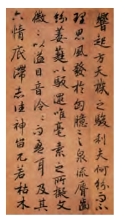 響起方天機之駿利夫何紛而不
理思風發於胸臆言泉流於脣齒
紛葳蕤以馺遝唯毫素之所擬文
徽徽以溢目音泠泠而盈耳及其
六情底滯志往神留兀若枯木